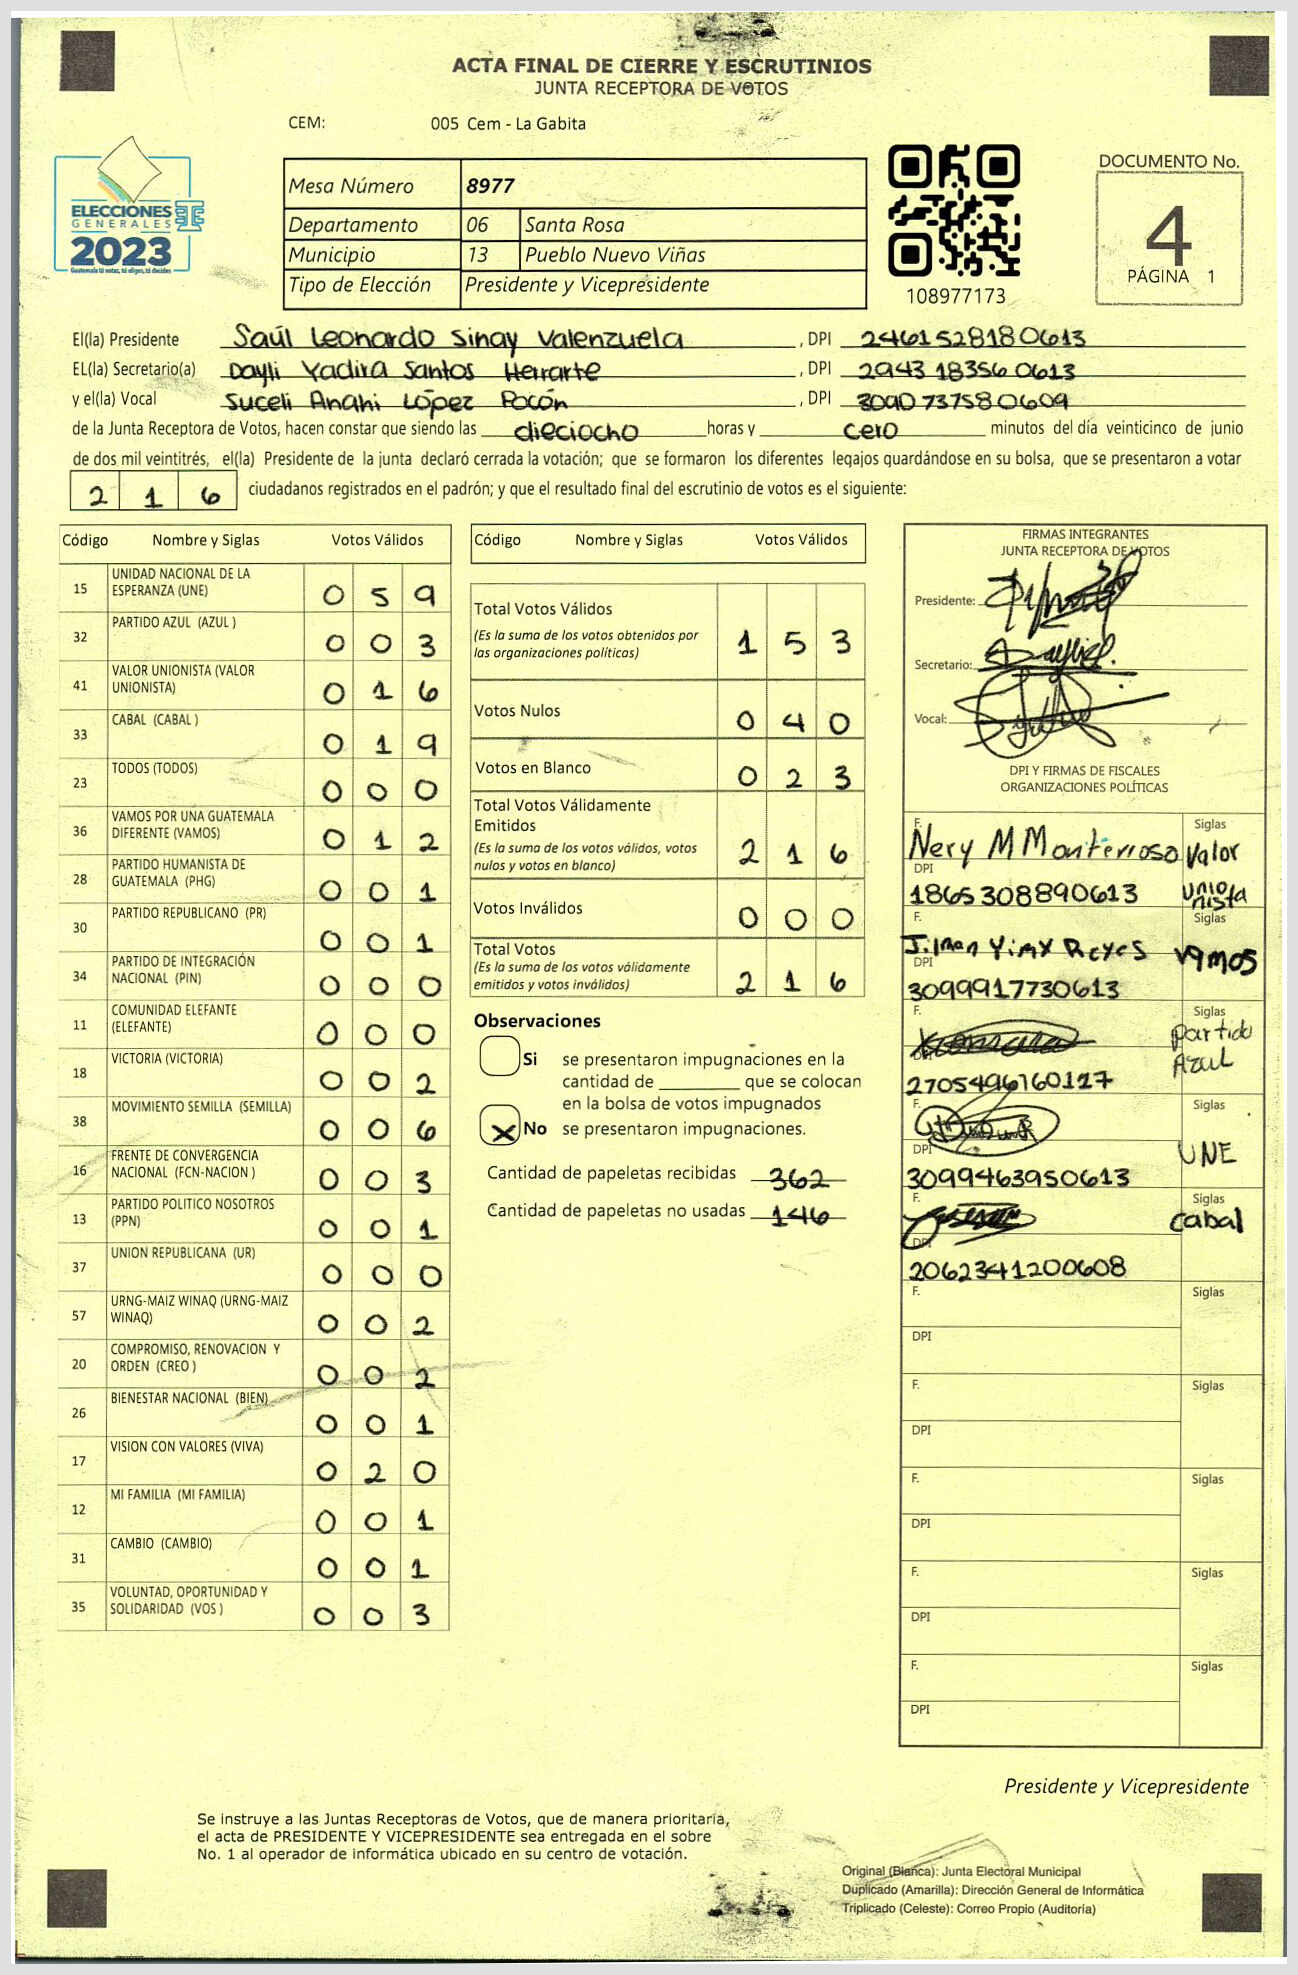 ACTA FINAL DE CIERRE Y ESCRUTINIOS
JUNTA RECEPTORA DE VOTOS
CEM: 005 Cem - La Gabita
ELECCIONES
GENERALES
2023
Guatemala tú votas, tú eliges, tú decides
Mesa Número 8977
Departamento 06 Santa Rosa
Municipio 13 Pueblo Nuevo Viñas
Tipo de Elección Presidente y Vicepresidente
108977173
DOCUMENTO No.
4
PÁGINA 1
El(la) Presidente Saúl Leonardo Sinay Valenzuela , DPI 2461528180613
EL(la) Secretario(a) Dayli Yadira Santos Herrarte , DPI 2943183560613
y el(la) Vocal Suceli Anahi López Pocón , DPI 3090737580609
de la Junta Receptora de Votos, hacen constar que siendo las dieciocho horas y cero minutos del día veinticinco de junio
de dos mil veintitrés, el(la) Presidente de la junta declaró cerrada la votación; que se formaron los diferentes legajos guardándose en su bolsa, que se presentaron a votar
2 1 6 ciudadanos registrados en el padrón; y que el resultado final del escrutinio de votos es el siguiente:
Código Nombre y Siglas Votos Válidos
15 UNIDAD NACIONAL DE LA
ESPERANZA (UNE) 0 5 9
32 PARTIDO AZUL (AZUL ) 0 0 3
41 VALOR UNIONISTA (VALOR
UNIONISTA) 0 1 6
33 CABAL (CABAL ) 0 1 9
23 TODOS (TODOS) 0 0 0
36 VAMOS POR UNA GUATEMALA
DIFERENTE (VAMOS) 0 1 2
28 PARTIDO HUMANISTA DE
GUATEMALA (PHG) 0 0 1
30 PARTIDO REPUBLICANO (PR) 0 0 1
34 PARTIDO DE INTEGRACIÓN
NACIONAL (PIN) 0 0 0
11 COMUNIDAD ELEFANTE
(ELEFANTE) 0 0 0
18 VICTORIA (VICTORIA) 0 0 2
38 MOVIMIENTO SEMILLA (SEMILLA) 0 0 6
16 FRENTE DE CONVERGENCIA
NACIONAL (FCN-NACION ) 0 0 3
13 PARTIDO POLITICO NOSOTROS
(PPN) 0 0 1
37 UNION REPUBLICANA (UR) 0 0 0
57 URNG-MAIZ WINAQ (URNG-MAIZ
WINAQ) 0 0 2
20 COMPROMISO, RENOVACION Y
ORDEN (CREO ) 0 0 2
26 BIENESTAR NACIONAL (BIEN) 0 0 1
17 VISION CON VALORES (VIVA) 0 2 0
12 MI FAMILIA (MI FAMILIA) 0 0 1
31 CAMBIO (CAMBIO) 0 0 1
35 VOLUNTAD, OPORTUNIDAD Y
SOLIDARIDAD (VOS ) 0 0 3
Código Nombre y Siglas Votos Válidos
Total Votos Válidos
(Es la suma de los votos obtenidos por
las organizaciones políticas) 1 5 3
Votos Nulos 0 4 0
Votos en Blanco 0 2 3
Total Votos Válidamente
Emitidos
(Es la suma de los votos válidos, votos
nulos y votos en blanco) 2 1 6
Votos Inválidos 0 0 0
Total Votos
(Es la suma de los votos válidamente
emitidos y votos inválidos) 2 1 6
Observaciones
Si se presentaron impugnaciones en la
cantidad de ________ que se colocan
en la bolsa de votos impugnados
X No se presentaron impugnaciones.
Cantidad de papeletas recibidas 362
Cantidad de papeletas no usadas 146
FIRMAS INTEGRANTES
JUNTA RECEPTORA DE VOTOS
Presidente:
Secretario:
Vocal:
DPI Y FIRMAS DE FISCALES
ORGANIZACIONES POLÍTICAS
F. Nery M Monterroso Siglas Valor
DPI 1865308890613 Unio
nista
F. Yimy Reyes Siglas Vamos
DPI 3099917730613
F. Siglas Partido
Azul
DPI 2705496160117
F. Siglas UNE
DPI 3099463950613
F. Siglas Cabal
DPI 2062341200608
F. Siglas
DPI
F. Siglas
DPI
F. Siglas
DPI
F. Siglas
DPI
F. Siglas
DPI
Presidente y Vicepresidente
Se instruye a las Juntas Receptoras de Votos, que de manera prioritaria,
el acta de PRESIDENTE Y VICEPRESIDENTE sea entregada en el sobre
No. 1 al operador de informática ubicado en su centro de votación.
Original (Blanca): Junta Electoral Municipal
Duplicado (Amarilla): Dirección General de Informática
Triplicado (Celeste): Correo Propio (Auditoría)